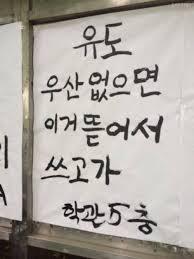 유도
우산없으면
이거 뜯어서
쓰고가
학관 5층
이
A